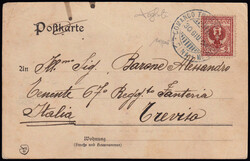 Postkarte
An Mmo Sig. Barone Alessandro
Tenente 67° Regg. Fanteria
Italia
Treviso
Wohnung
(Strasse und Hausnummer)